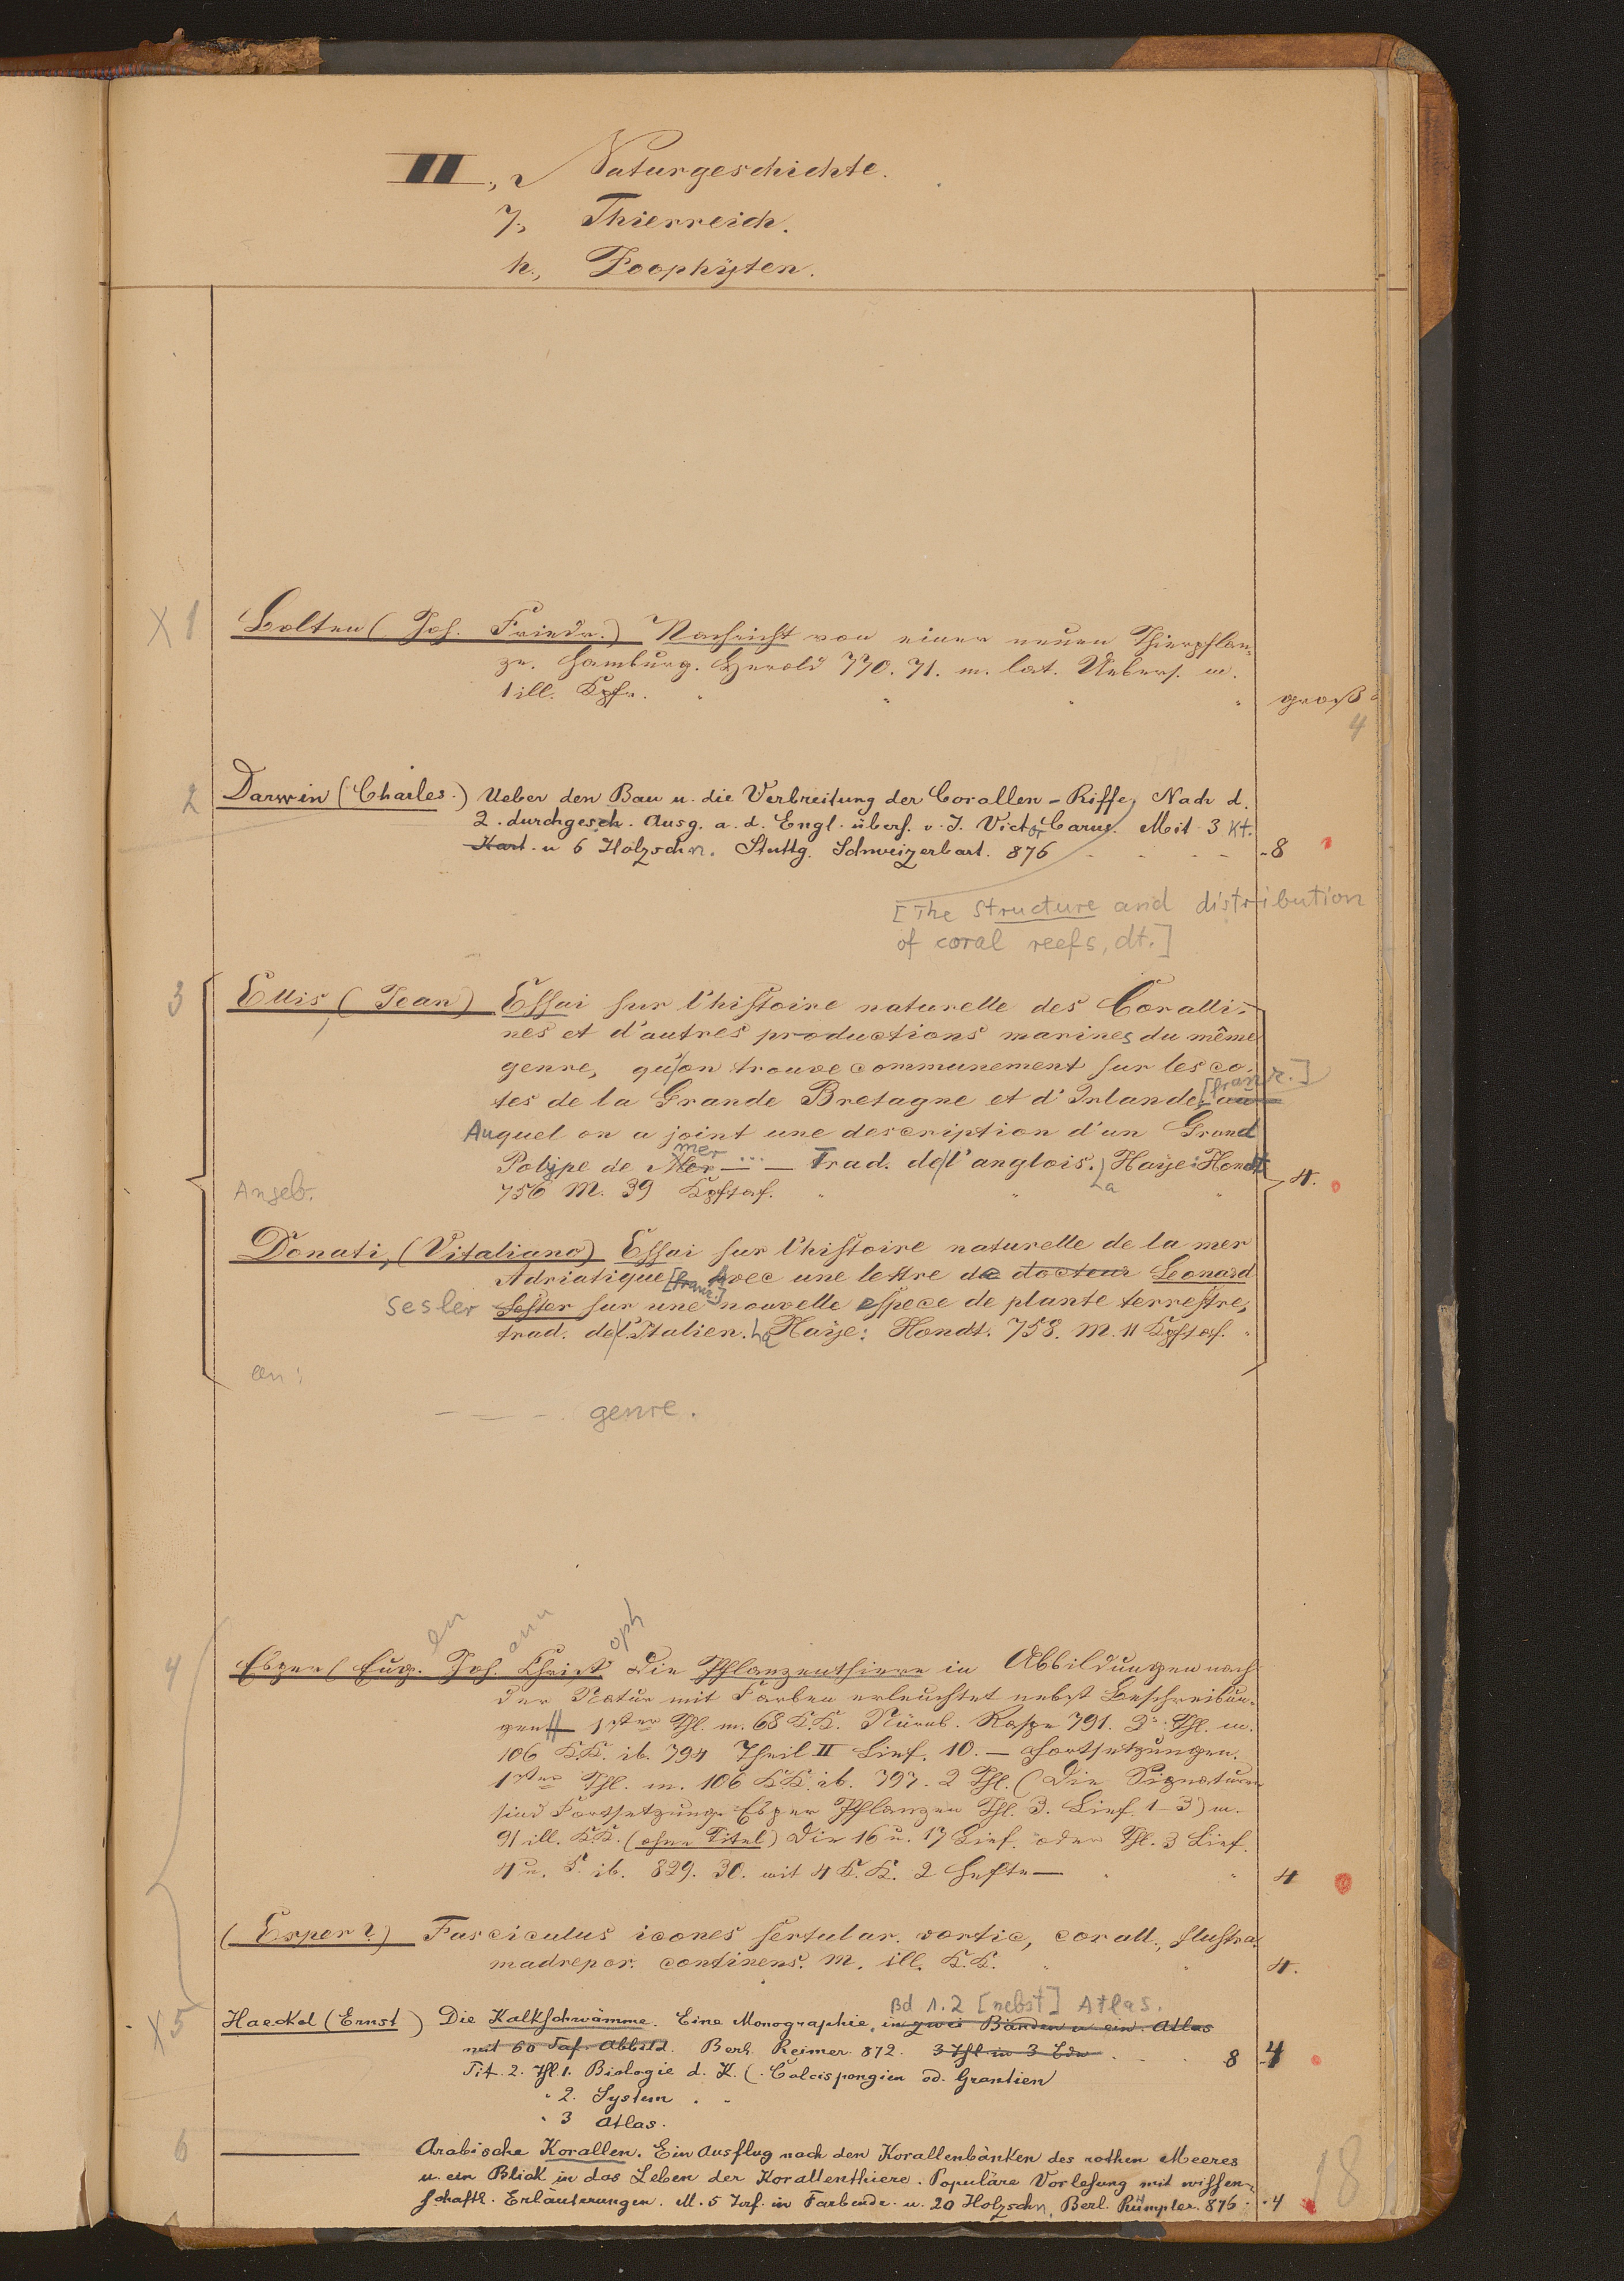 III., Naturgeschichte.
7., Thierreich.
h., Zoophÿten.
X 1 Bolten (Joh. Friedr.) Nachricht von einer neuen Thierpflan-
ze. Hamburg. Herold 770. 71. m. lat. Uebers. u.
1 ill. Kpfr. groß
4
2 Darwin (Charles.) Ueber den Bau u. die Verbreitung der Corallen-Riffe, Nach d.
2. durchgeseh. Ausg. a. d. Engl. übers. v. J. Victor Carus. Mit 3 Kt.
Kart. u 6 Holzschn. Stuttg. Schweizerbart. 876 - 8
[The structure and distribution
of coral reefs, dt.]
3 Ellis, (Jean) Essai sur l'histoire naturelle des Coralli-
nes et d'autres productions marines du même
genre, qu'on trouve communement sur les co-
tes de la Grande Bretagne et d'Irlande, [franz.] au
Auquel on a joint une description d'un Grand
Polÿpe de Mer mer — ... — Trad. de l'anglois. La Haÿe: Hondt
756 M. 39 Kpftaf. 4.
Angeb.
Donati, (Vitaliano) Essai sur l'histoire naturelle de la mer
Adriatique [franz.] Avec une lettre de docteur Leonard
sesler Sester sur une nouvelle espece de plante terrestre,
trad. de l'Italien. La Haÿe: Hondt. 758. M. 11 Kpftaf.
an:
— — - . genre.
en ann oph
4 Esper (Eug. Joh. Christ) Die Pflanzenthiere in Abbildungen nach
der Natur mit Farben erleuchtet nebst Beschreibun-
gen 1ster Thl. m. 68 K.K. Nürnb. Raspe 791. 2r Thl. m.
106 K.K. ib. 794 Theil II Lief. 10. — Fortsetzungen.
1ster Thl. m. 106 K.K. ib. 797. 2 Thl. (Die Signaturen
sind Fortsetzung. Esper Pflanzen Thl. 3. Lief. 1-3) m.
91 ill. K.K. (ohne Titel) Die 16 u. 17 Lief. oder Thl. 3 Lief.
4 u. 5. ib. 829. 30. mit 4 K.K. 2 Hefte — 4
(Esper?) Fasciculus icones sertular. vortic, corall., flustra.
madrepor. continens. M. ill. K.K. 4.
Bd 1.2 [nebst] Atlas.
X 5 Haeckel (Ernst) Die Kalkschwämme. Eine Monographie, in zwei Bänden u. ein. Atlas
mit 60 Taf. Abbild. Berl. Reimer. 872. 3 Thl in 3 Bdn 8 4
Tit. 2. Thl. 1. Biologie d. K. (Calcispongien od. Grantien
" 2. System
" 3 Atlas.
6 —— Arabische Korallen. Ein Ausflug nach den Korallenbänken des rothen Meeres
u. ein Blick in das Leben der Korallenthiere. Populäre Vorlesung mit wissen-
schaftl. Erläuterungen. M. 5 Taf. in Farbendr. u. 20 Holzschn. Berl. Rümpler. 876. 4
18